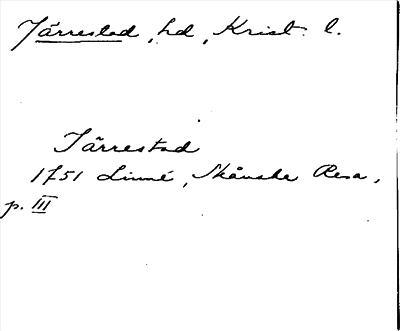 Järrestad, hd, Krist. l.
Järrestad
1751 Linné, Skånska Resa,
p. III